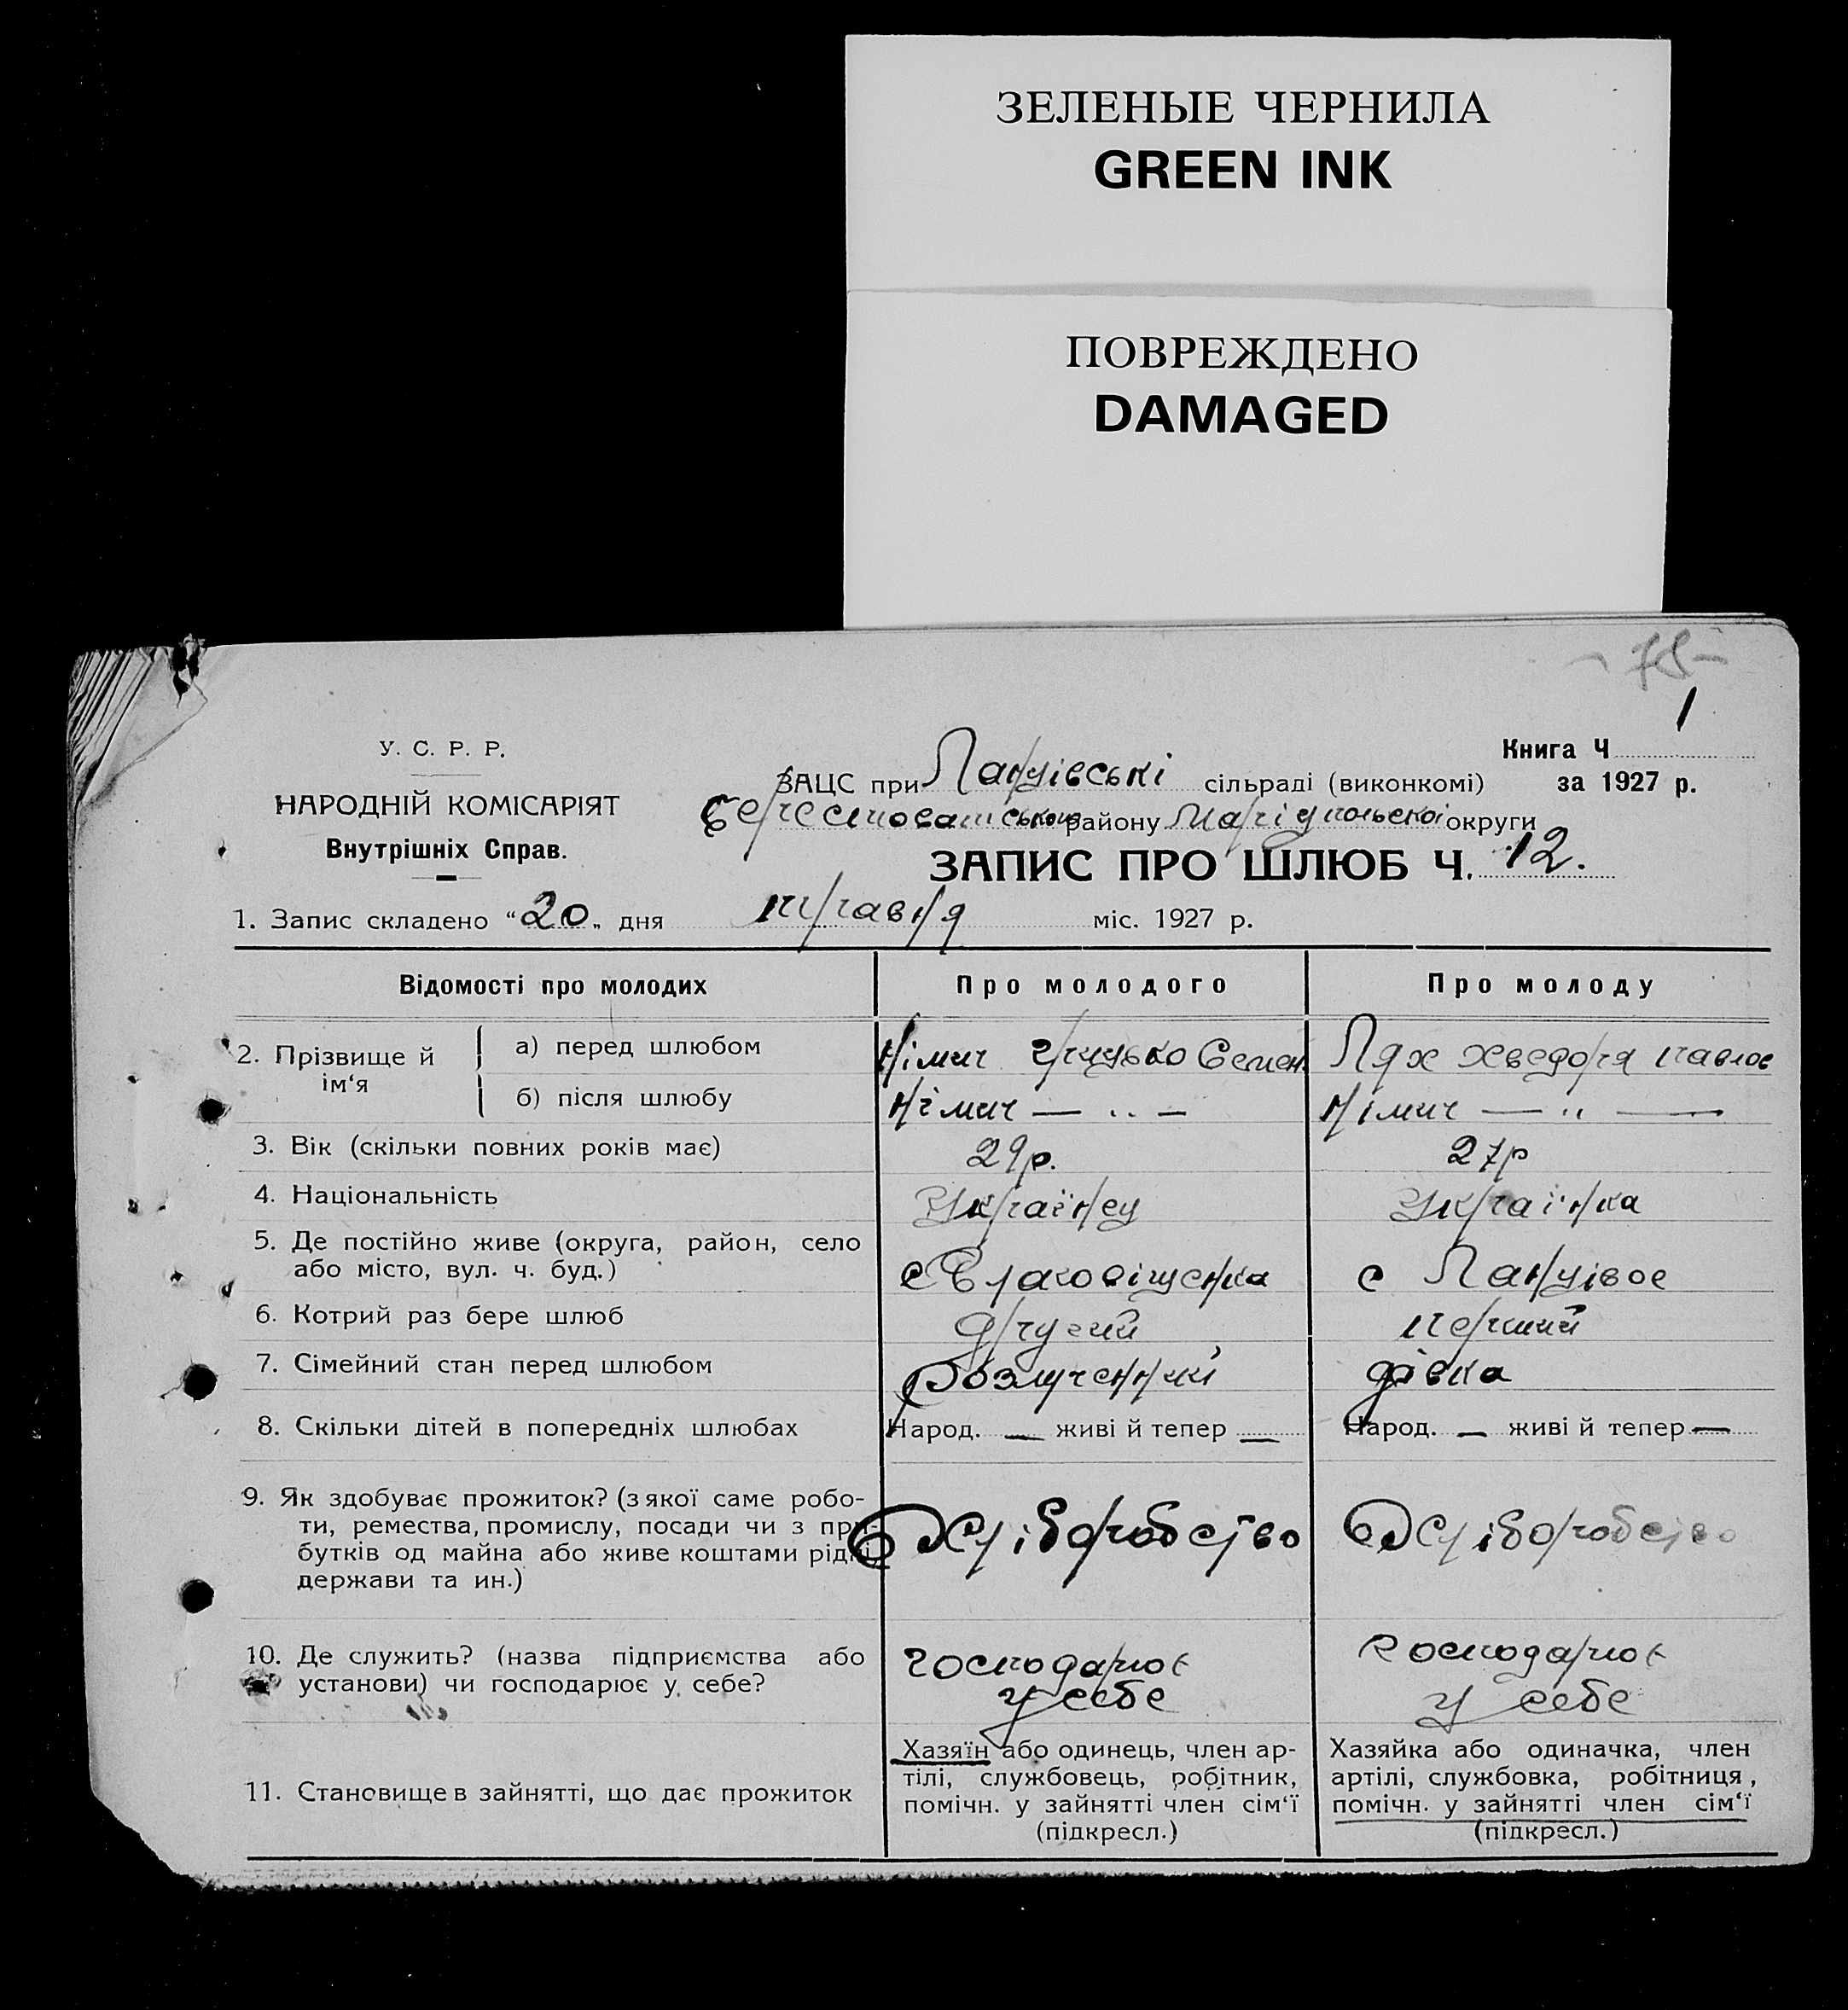 ЗЕЛЕНЫЕ ЧЕРНИЛА
GREEN INK
ПОВРЕЖДЕНО
DAMAGED
1
У. С. Р. Р.
НАРОДНІЙ КОМІСАРІЯТ
Внутрішніх Справ.
Книга Ч
ЗАЦС при Ланцівські сільраді (виконкомі) за 1927 р.
району Маріупольскоі округи
ЗАПИС ПРО ШЛЮБ Ч. 12.
1. Запис складено “20„ дня травня міс. 1927 р.
Відомості про молодих Про молодого Про молоду
2. Прізвище й ім‘я
а) перед шлюбом Німич Грицько Семен. Лях Хведоря Павлов
б) після шлюбу Німич — ·· — Німич — ·· —
3. Вік (скільки повних років має) 29р. 27р
4. Національність Українец Українка
5. Де постійно живе (округа, район, село
або місто, вул. ч. буд.) с Благовіщенка с Ланцівое
6. Котрий раз бере шлюб другий перший
7. Сімейний стан перед шлюбом розлученний дівка
8. Скільки дітей в попередніх шлюбах Народ. — живі й тепер — Народ. — живі й тепер —
9. Як здобуває прожиток? (з якої саме робо-
ти, ремества, промислу, посади чи з при-
бутків од майна або живе коштами рідні,
держави та ин.)
Хліборобство Хліборобство
10. Де служить? (назва підприємства або
установи) чи господарює у себе?
господарює
у себе
господарює
у себе
11. Становище в зайнятті, що дає прожиток
Хазяїн або одинець, член ар-
тілі, службовець, робітник,
помічн. у зайнятті член сім‘ї
(підкресл.)
Хазяйка або одиначка, член
артілі, службовка, робітниця,
помічн. у зайнятті член сім‘ї
(підкресл.)